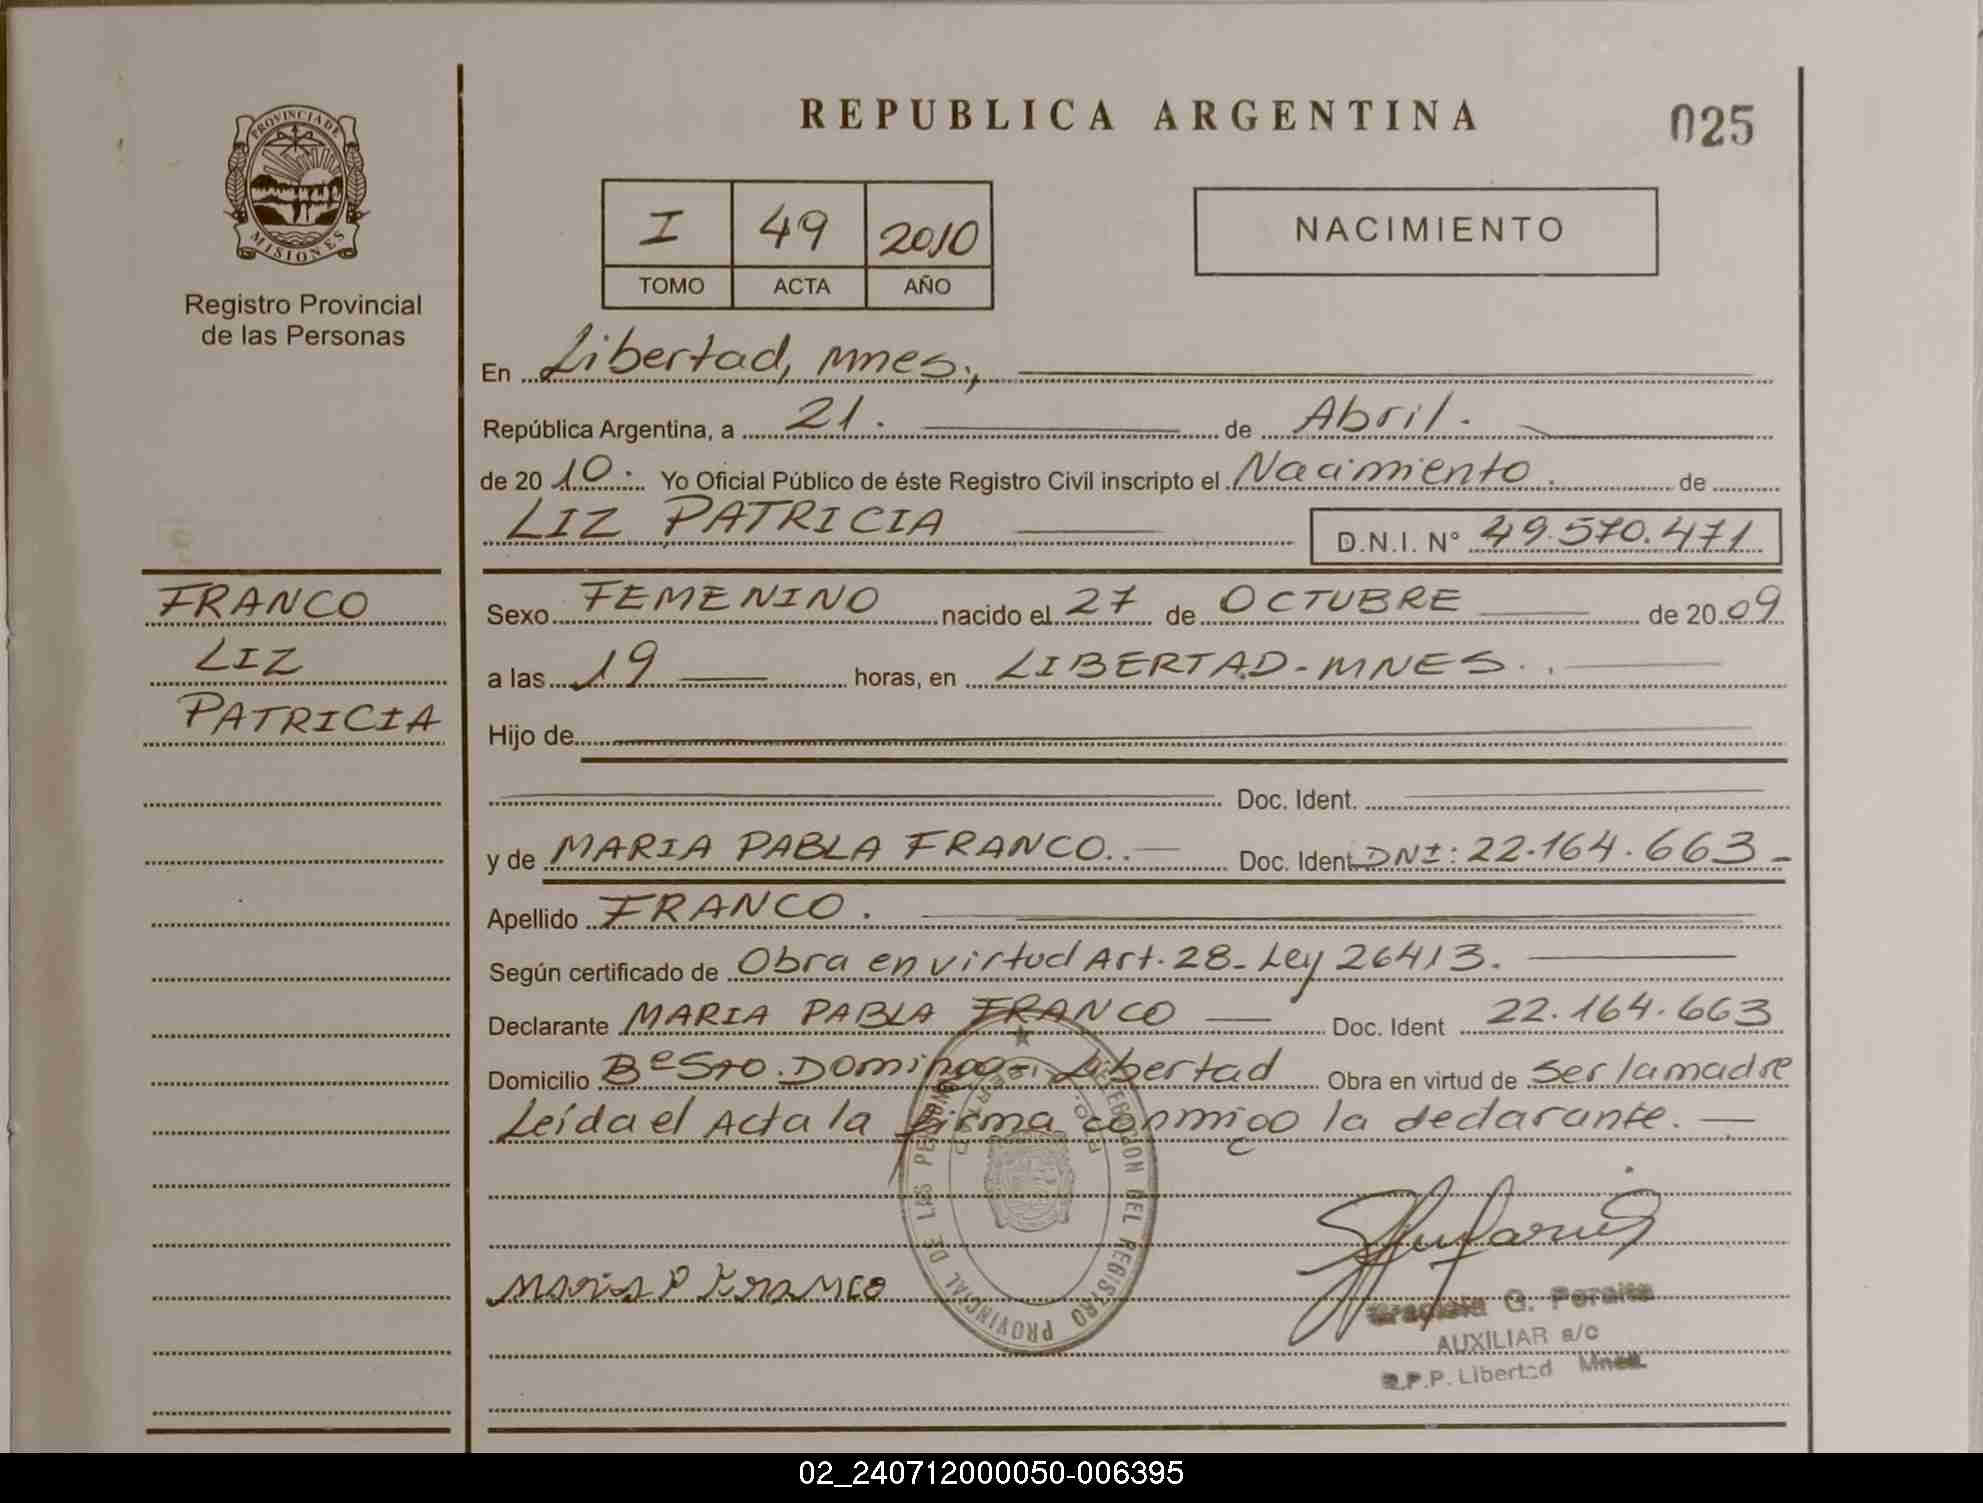 REPUBLICA ARGENTINA
025
PROVINCIA DE
MISIONES
Registro Provincial
de las Personas
I 49 2010
TOMO ACTA AÑO
NACIMIENTO
En Libertad, Mnes.,
República Argentina, a 21. de Abril.
de 20 10. Yo Oficial Público de éste Registro Civil inscripto el Nacimiento. de
LIZ PATRICIA D.N.I. N° 49.570.471
FRANCO
LIZ
PATRICIA
Sexo FEMENINO nacido el 27 de OCTUBRE de 20 09
a las 19 horas, en LIBERTAD-MNES.
Hijo de
Doc. Ident.
y de MARIA PABLA FRANCO. Doc. Ident DNI: 22.164.663-
Apellido FRANCO.
Según certificado de Obra en virtud Art. 28- Ley 26413.
Declarante MARIA PABLA FRANCO Doc. Ident 22.164.663
Domicilio B° Sto. Domingo - Libertad Obra en virtud de ser la madre
Leída el Acta la firma conmigo la declarante.
DEL REGISTRO PROVINCIAL DE LAS
Maria P Franco
Graciela G. Peralta
AUXILIAR a/c
R.P.P. Libertad Mnes.
02_240712000050-006395